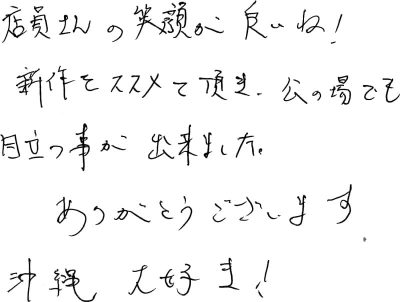 店員さんの笑顔が良いね!
新作をススメて頂き、公の場でも
目立つ事が出来ました。
ありがとうございます
沖縄 大好き!